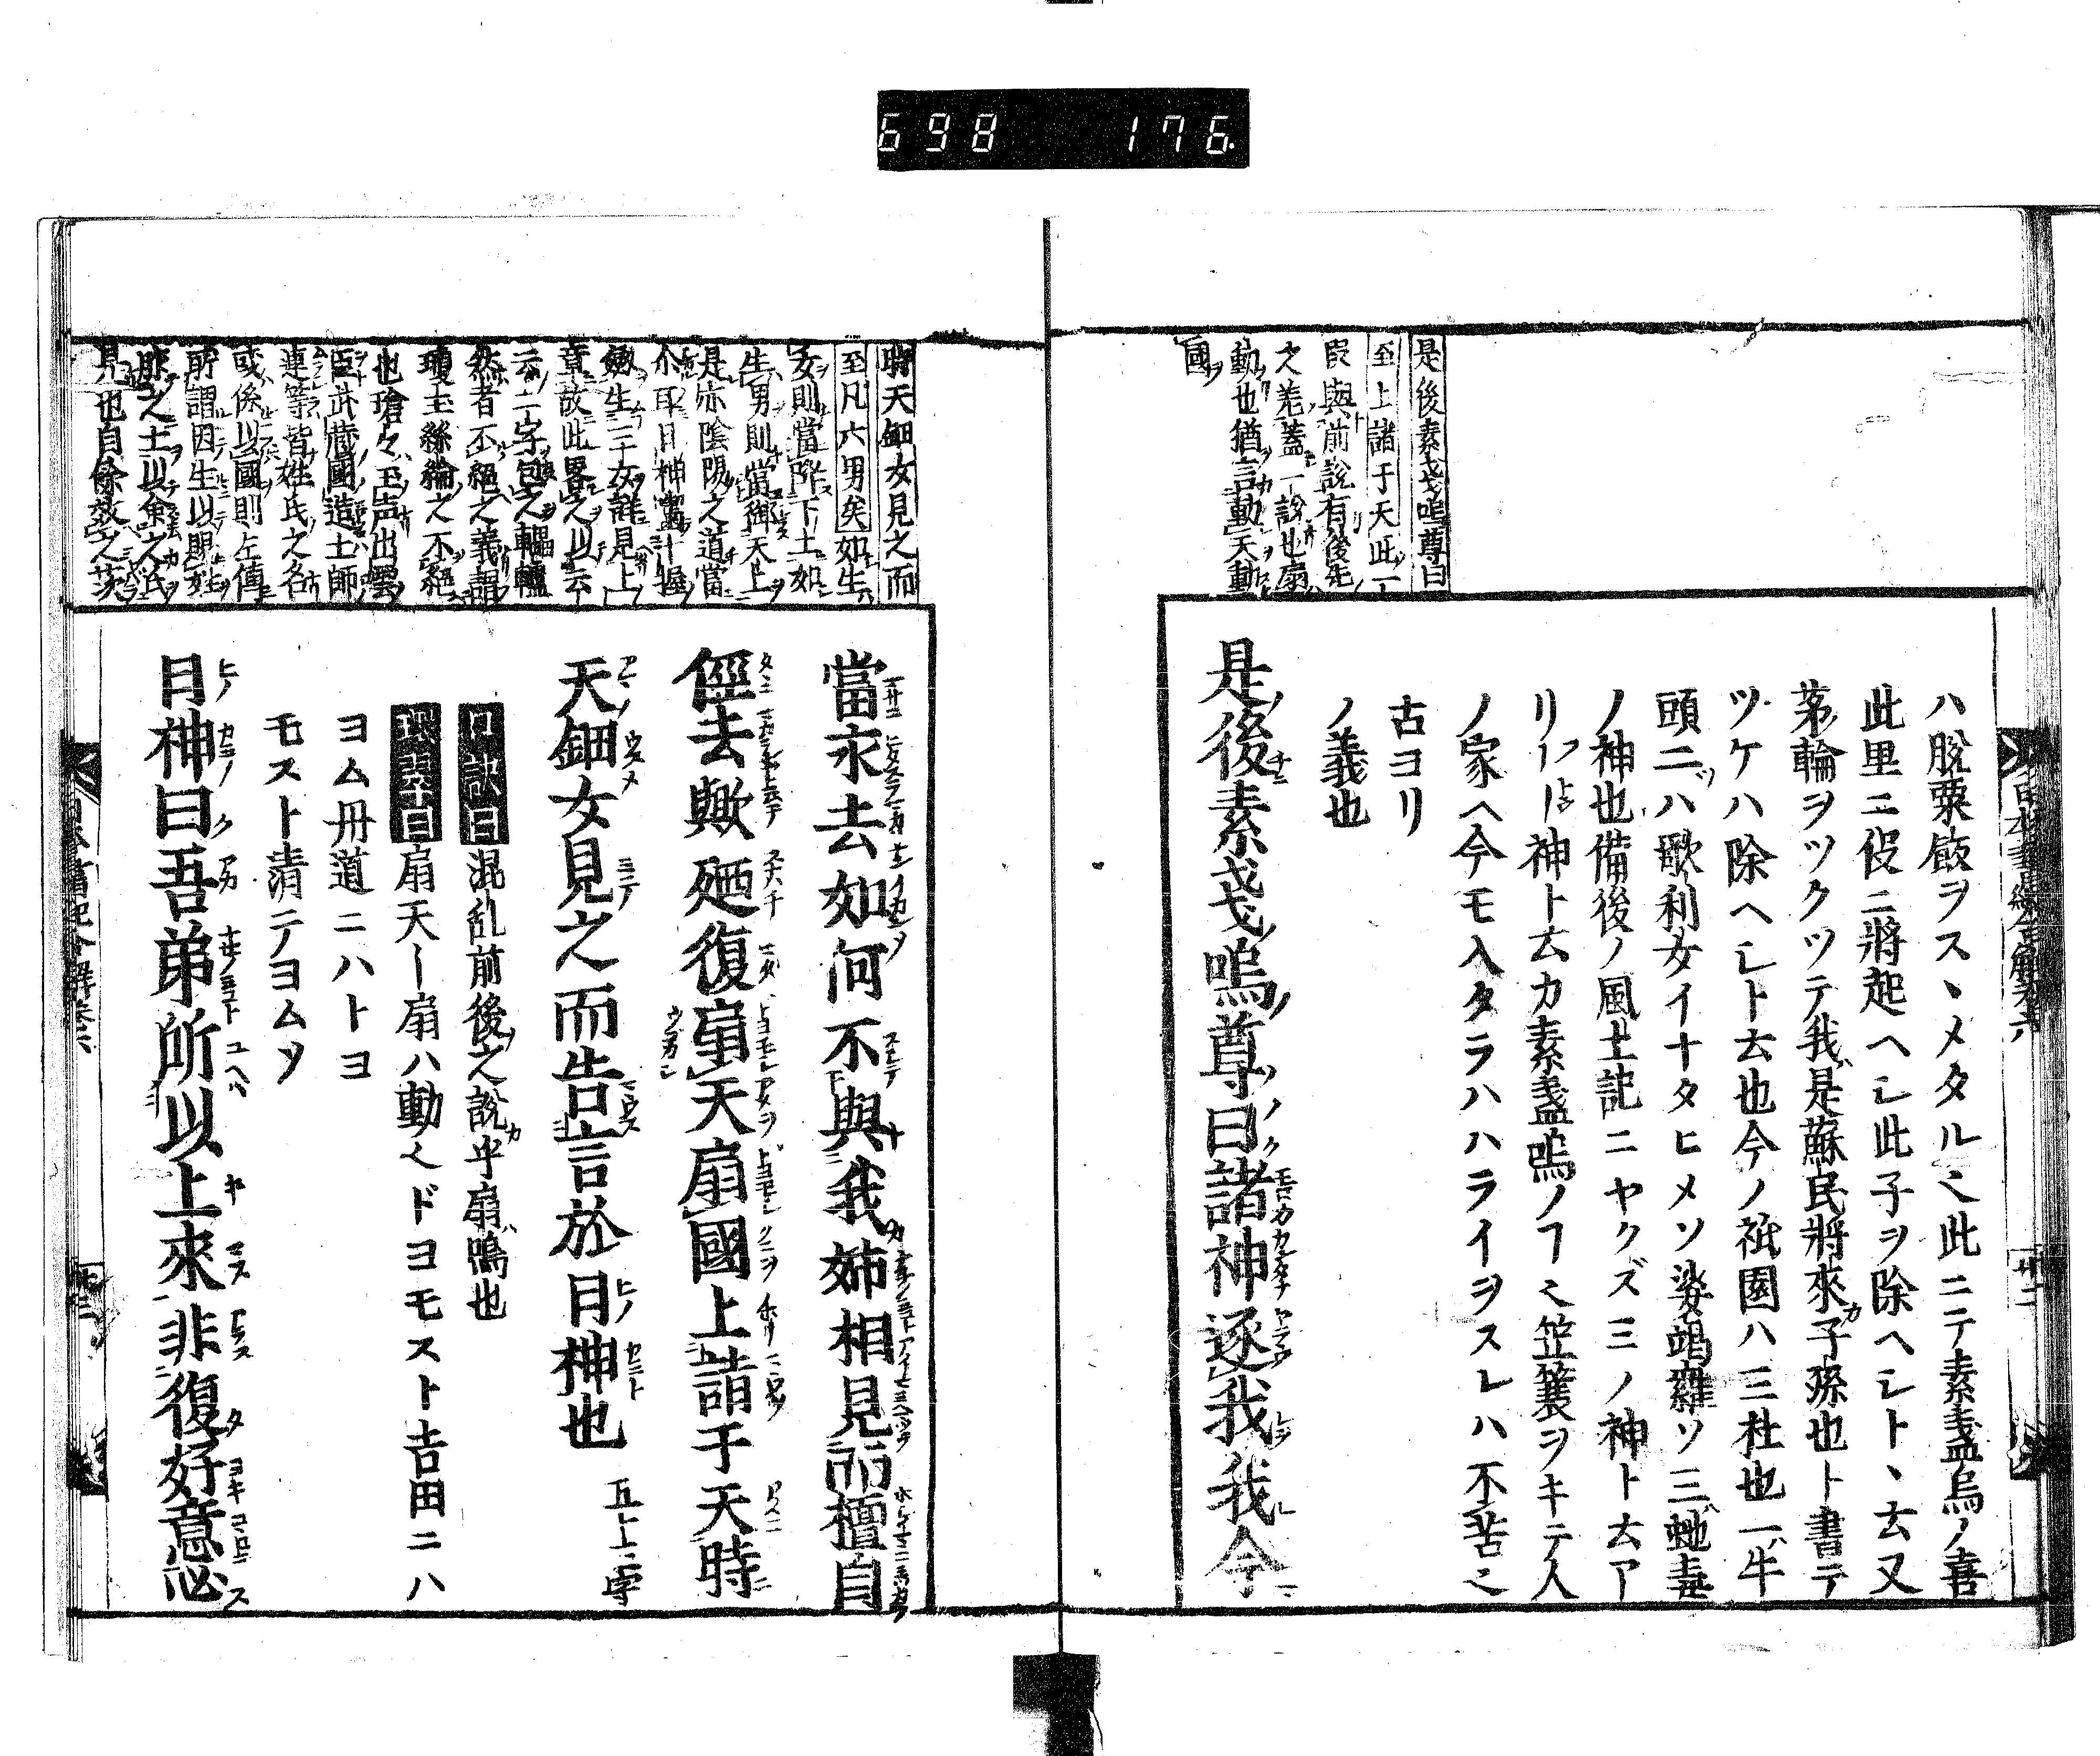 698 176
是後素戔嗚尊曰
至上諸于天此一
段與前說有後先
之差蓋一說也扇
動也猶言動天動
國
ハ脫粟飯ヲスヽメタルミ此ニテ素盞烏ノ喜
此里ニ伇ニ將起ヘシ此子ヲ除ヘシトヽ云又
茅輪ヲツクツテ我是蘇民將來子孫也ト書テ
ツケハ除ヘシト云也今ノ祗園ハ三社也一ハ牛
頭二ツハ歌利女イナタヒメソ婆竭羅ソ三ハ虵毒
ノ神也備後ノ風土記ニヤクズミノ神ト云ア
神ト云カ素盞嗚ノフミ笠簑ヲキテ人
ノ家ヘ今モ入タラハハライヲスレハ不苦ミ
古ヨリ
ノ義也
是後素戔嗚尊曰諸神逐我我今
日本書紀合解卷六
廿二
時天鈿女見之而
至凡六男矣如生
女則當降下土如
生男則當御天上
是亦陰陽之道當
尒耳日神嚙十握
劔生三女詳見上
章故此畧之以云
云二字包之轠轤
然者不絕之義謂
瓊玉絲綸之不絕
也瑲々玉声出雲
臣武藏國造土師
連等皆姓氏之名
或係以國則左傳
所謂因生以賜姓
胙之土以命之氏
見也自餘效之莢
當永去如何不與我姉相見而擅自
俓去歟廼復扇天扇國上詣于天時
天鈿女見之而告言於日神也
口訣曰混乱前後之說乎扇ハ鳴也
環翠曰扇天ー扇ハ動くドヨモスト吉田ニハ
ヨム冊道ニハトヨ
モスト清テヨムソ
日神曰吾弟所以上來非復好意必